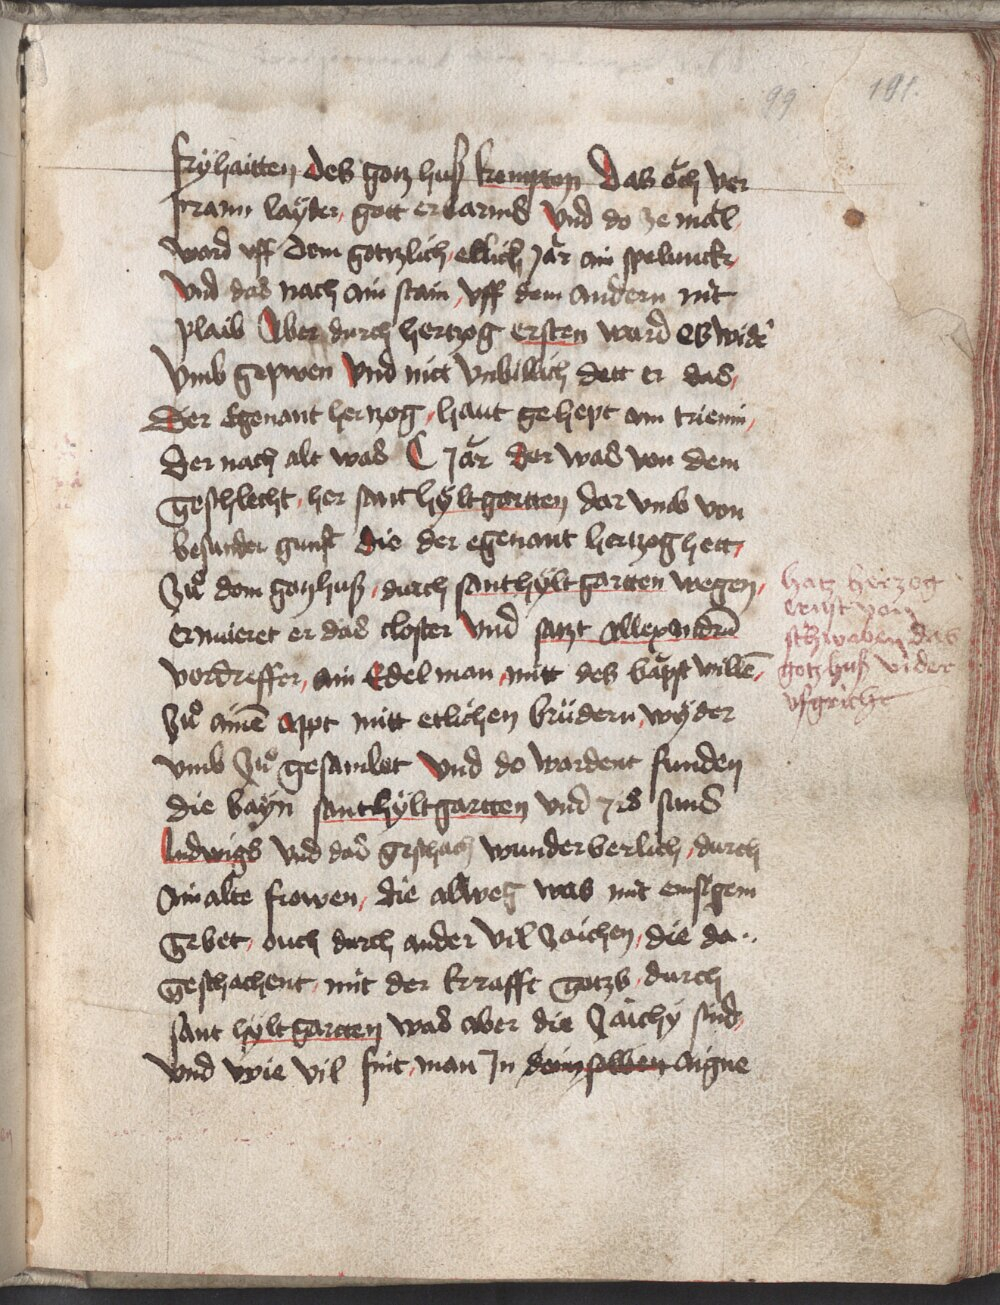 99 191.
fryhaitten des gotz huß kempton Das ŏch ver
prann laÿder gott erbarmß Vnd do ze mäl
ward vff dem gotzlich etlich Jăr ain spelunck
Vnd das nach ain stain vff dem andern nit
plaib Aber durch hertzog ersten ward es wider
Vmb gepwen Vnd nitt vnbillich dett er das
Der Egenant hertzog haut gehept ain
der nach alt was C Jăr der was von dem
geschlecht her sant hÿltgartten dar vmb von
besunder gunst die der egenant hertzog hett
Zů dem gotzhuß durch sant hÿltgartten wegen
ernuieret er das closter Vnd satzt Allexandrū
vordreffer ain Edel man mitt des băpst willē
Zů ainē Appt mitt etlichen brüdern wÿder
vmb Zů gesamlet Vnd do wardent funden
die bayn sant hÿltgartten vnd sand
ludwigß Vnd das geschach wunderberlich durch
Ain alte frowen die allweg was mit emsigem
gebet ouch durch ander vil Zaichen die da
geschachent mit der krrafft gotzß durch
sant hÿltgartten was aber die Zaichÿ sind
vnd wie vil fint man In dem selben aigne
hatz herzog
ernst von
schwaben das
gotz huß wider
vfgricht